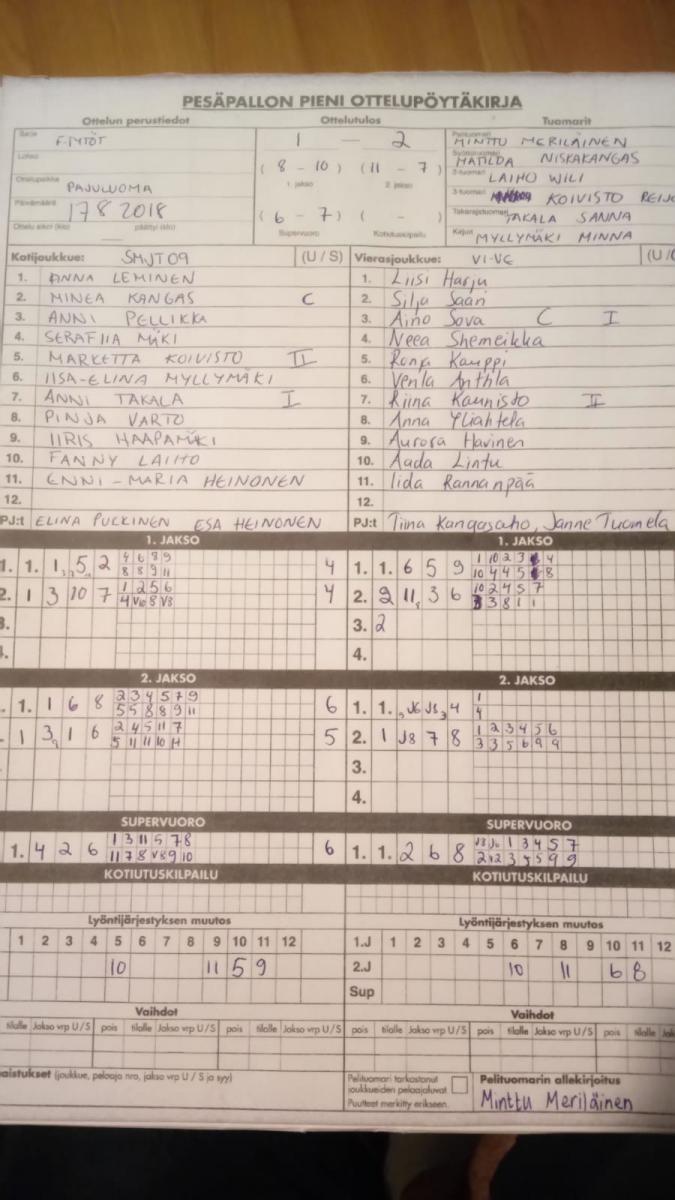 PESÄPALLON PIENI OTTELUPÖYTÄKIRJA
Ottelun perustiedot Ottelutulos Tuomarit
Sarja F-TYTÖT 1 - 2 Pelituomari MINTTU MERILÄINEN
Lohko (8 - 10) (11 - 7) Syöttötuomari MATILDA NISKAKANGAS
1. jakso 2. jakso 2-tuomari LAIHO WILI
Ottelupaikka PAJULUOMA 3-tuomari KOIVISTO REIJO
Päivämäärä 17 8 2018 (6 - 7) ( - ) Takarajatuomari TAKALA SANNA
Ottelu alkoi (klo) päättyi (klo) Supervuoro Kotiutuskilpailu Kirjuri MYLLYMÄKI MINNA
Kotijoukkue: SMJT09 (U / S) Vierasjoukkue: VI-VE (U /
1. ANNA LEMINEN 1. Liisi Harju
2. MINEA KANGAS C 2. Silja Saari
3. ANNI PELLIKKA 3. Aino Sova C I
4. SERAFIIA MÄKI 4. Neea Shemeikka
5. MARKETTA KOIVISTO II 5. Ronja Kamppi
6. IISA-ELINA MYLLYMÄKI 6. Venla Anthla
7. ANNI TAKALA I 7. Riina Kaunisto II
8. PINJA VARTO 8. Anna Yliahtela
9. IIRIS HAAPAMÄKI 9. Aurora Havinen
10. FANNY LAIHO 10. Aada Lintu
11. ENNI-MARIA HEINONEN 11. Iida Rannanpää
12. 12.
PJ:t ELINA PULKINEN ESA HEINONEN PJ:t Tiina Kangasaho, Janne Tuomela
1. JAKSO 1. JAKSO
4 6 8 9 1 10 2 3 4
1. 1. 1 5 2 4 1. 1. 6 5 9
8 8 9 11 10 4 4 5 8
1 2 5 6 10 2 4 5 7
2. 1 3 10 7 4 2. 2 11, 3 6
4 V10 8 V8 3 8 1 1
3. 3. 2
4. 4.
2. JAKSO 2. JAKSO
2 3 4 5 7 9 1
1. 1 6 8 6 1. 1. , J6 J8, 4
5 5 8 8 9 11 4
2 4 5 11 7 1 2 3 4 5 6
1 3, 1 6 5 2. 1 J8 7 8
5 11 11 10 11 3 3 5 6 9 9
3.
4.
SUPERVUORO SUPERVUORO
1 3 11 5 7 8 J3 J6 1 3 4 5 7
1. 4 2 6 6 1. 1. 2 6 8
11 7 8 V8 9 10 2 3 5 9 9
KOTIUTUSKILPAILU KOTIUTUSKILPAILU
Lyöntijärjestyksen muutos Lyöntijärjestyksen muutos
1 2 3 4 5 6 7 8 9 10 11 12 1.J 1 2 3 4 5 6 7 8 9 10 11 12
10 11 5 9 2.J 10 11 6 8
Sup
Vaihdot Vaihdot
tilalle Jakso vrp U / S pois tilalle Jakso vrp U / S pois tilalle Jakso vrp U / S pois tilalle Jakso vrp U / S pois tilalle Jakso vrp U / S pois tilalle Jak
aistukset (joukkue, pelaaja nro, jakso vrp U / S ja syy) Pelituomari tarkastanut Pelituomarin allekirjoitus
joukkueiden pelaajaluvat.
Puutteet merkitty erikseen. Minttu Meriläinen